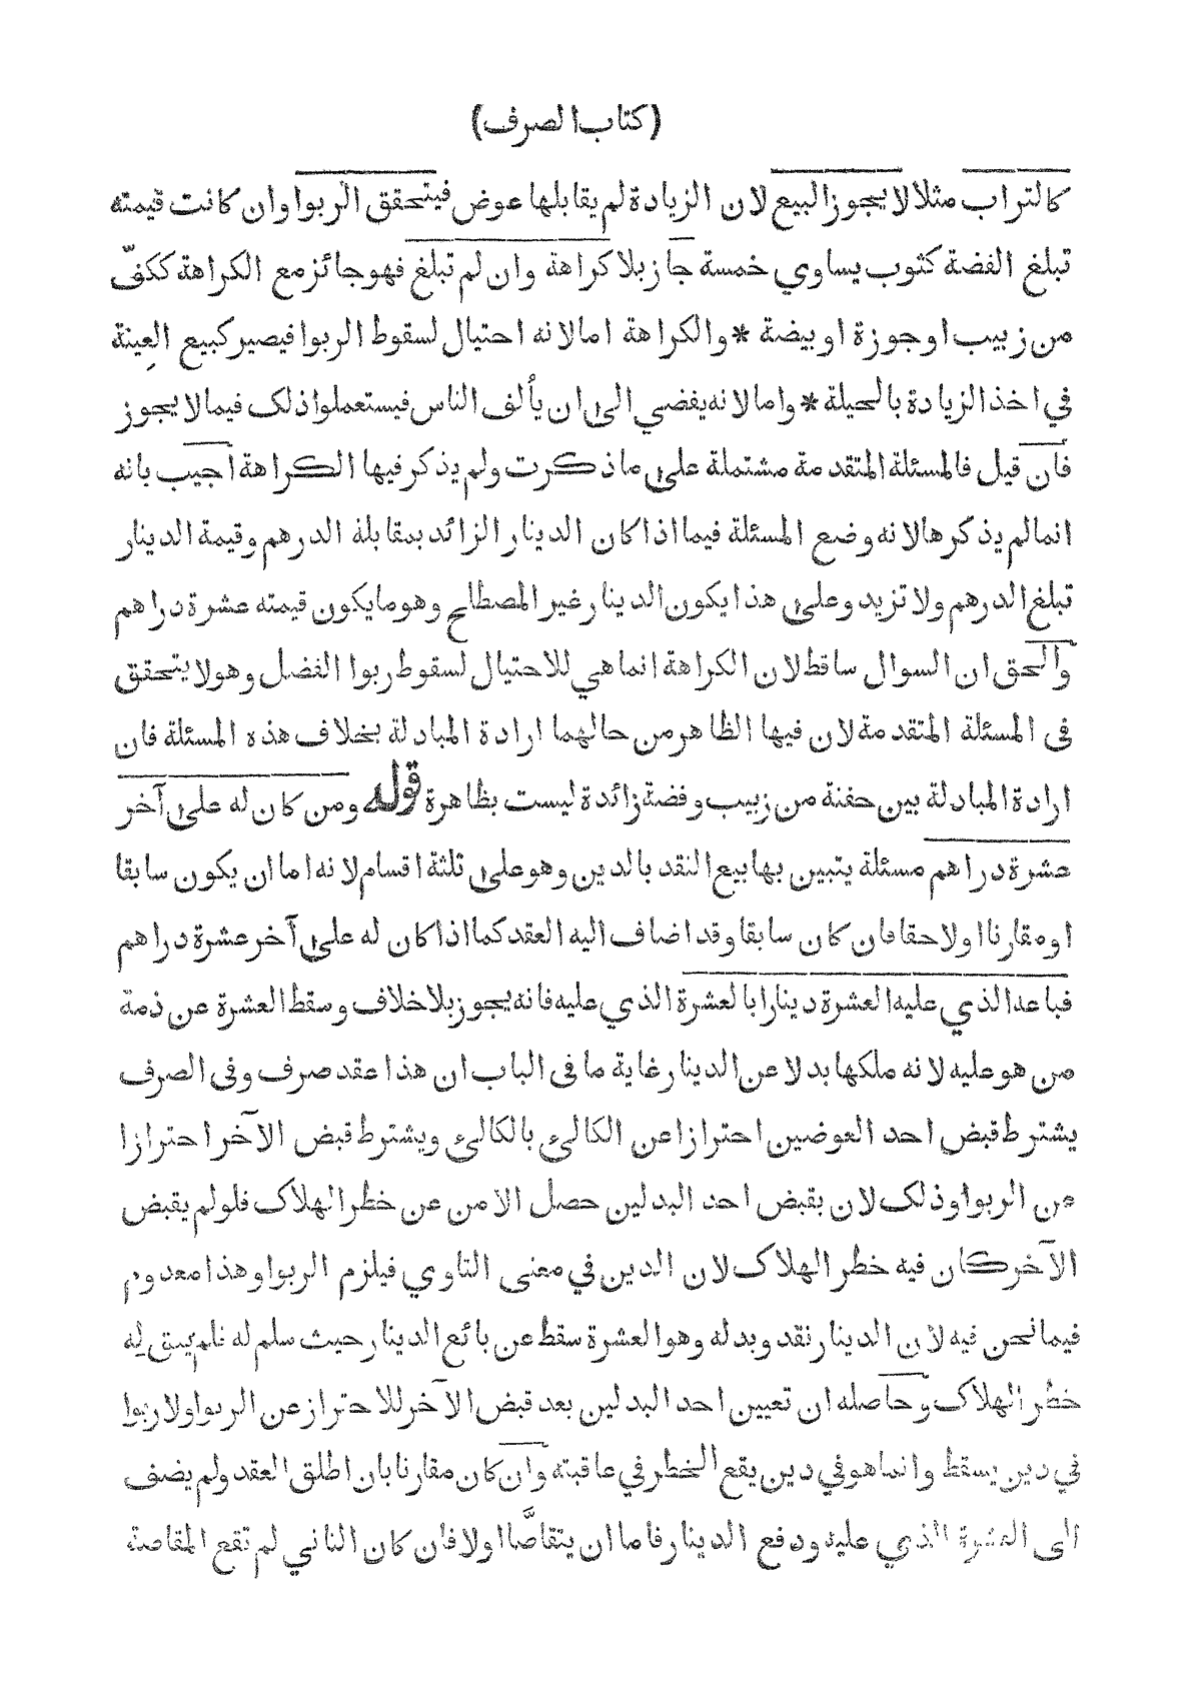 (كتاب الصرف)
كالتراب مثلا لا يجوز البيع لان الزيادة لم يقابلها عوض فيتحقق الربوا وان كانت قيمته
تبلغ الفضة كثوب يساوي خمسة جاز بلا كراهة وان لم تبلغ فهو جائز مع الكراهة ككفّ
من زبيب او جوزة او بيضة * والكراهة اما لانه احتيال لسقوط الربوا فيصير كبيع العِينة
في اخذ الزيادة بالحيلة * واما لانه يفضي الى ان يألف الناس فيستعملوا ذلك فيما لا يجوز
فان قيل فالمسئلة المتقدمة مشتملة على ما ذكرت ولم يذكر فيها الكراهة اجيب بانه
انما لم يذكرها لانه وضع المسئلة فيما اذا كان الدينار الزائد بمقابلة الدرهم وقيمة الدينار
تبلغ الدرهم ولا تزيد وعلى هذا يكون الدينار غير المصطلح وهو ما يكون قيمته عشرة دراهم
والحق ان السوال ساقط لان الكراهة انما هي للاحتيال لسقوط ربوا الفضل وهو لا يتحقق
فى المسئلة المتقدمة لان فيها الظاهر من حالهما ارادة المبادلة بخلاف هذه المسئلة فان
ارادة المبادلة بين حفنة من زبيب وفضة زائدة ليست بظاهرة قوله ومن كان له على آخر
عشرة دراهم مسئلة يتبين بها بيع النقد بالدين وهو على ثلثة اقسام لانه اما ان يكون سابقا
او مقارنا او لاحقا فان كان سابقا وقد اضاف اليه العقد كما اذا كان له على آخر عشرة دراهم
فباعه الذي عليه العشرة دينارا بالعشرة الذي عليه فانه يجوز بلا خلاف وسقط العشرة عن ذمة
من هو عليه لانه ملكها بدلا عن الدينار غاية ما فى الباب ان هذا عقد صرف وفى الصرف
يشترط قبض احد العوضين احترازا عن الكالئ بالكالئ ويشترط قبض الآخر احترازا
عن الربوا وذلك لان بقبض احد البدلين حصل الامن عن خطر الهلاك فلو لم يقبض
الآخر كان فيه خطر الهلاك لان الدين في معنى التاوي فيلزم الربوا وهذا معدوم
فيما نحن فيه لان الدينار نقد وبدله وهو العشرة سقط عن بائع الدينار حيث سلم له فلم يبق له
خطر الهلاك وحاصله ان تعيين احد البدلين بعد قبض الآخر للاحتراز عن الربوا ولا ربوا
في دين يسقط وانما هو في دين يقع الخطر في عاقبته وان كان مقارنا بان اطلق العقد ولم يضف
الى العشرة الذي عليه ودفع الدينار فاما ان يتقاصَّا اولا فان كان الثاني لم تقع المقاصة